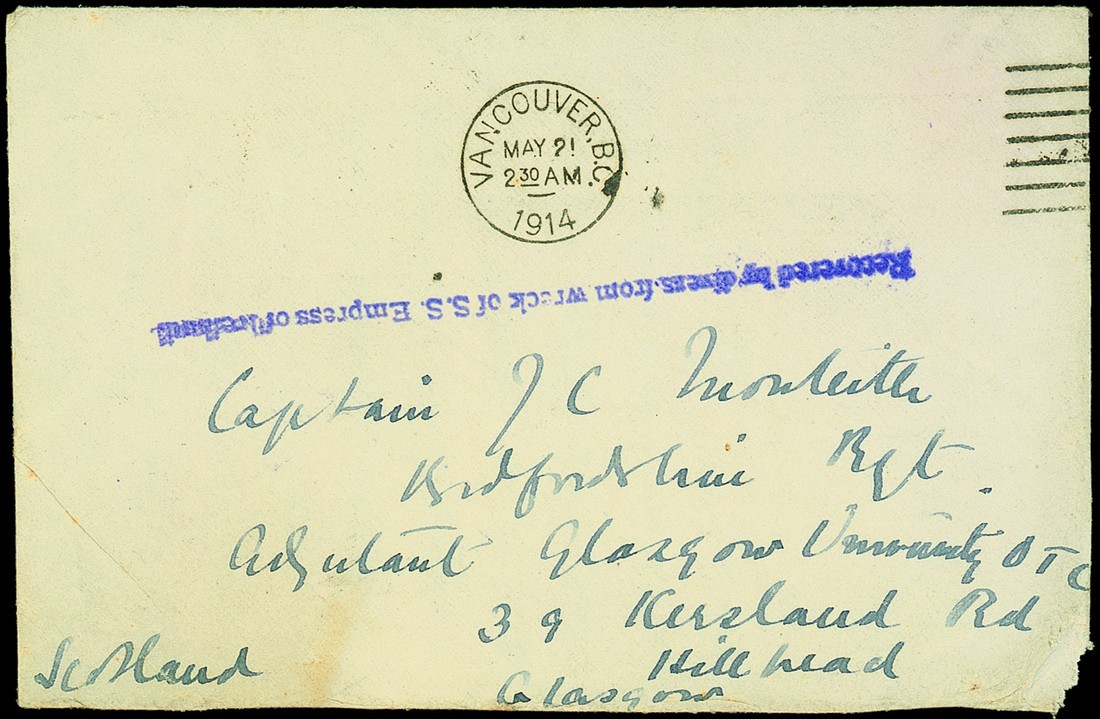 VANCOUVER, B.C.
MAY 21
2 30 AM.
1914
Recovered by divers from wreck of S.S. Empress of Ireland.
Captain J C Monteith
Bedfordshire Rgt.
Adjutant Glasgow University OTC
39 Kersland Rd
Hillhead
Glasgow
Scotland